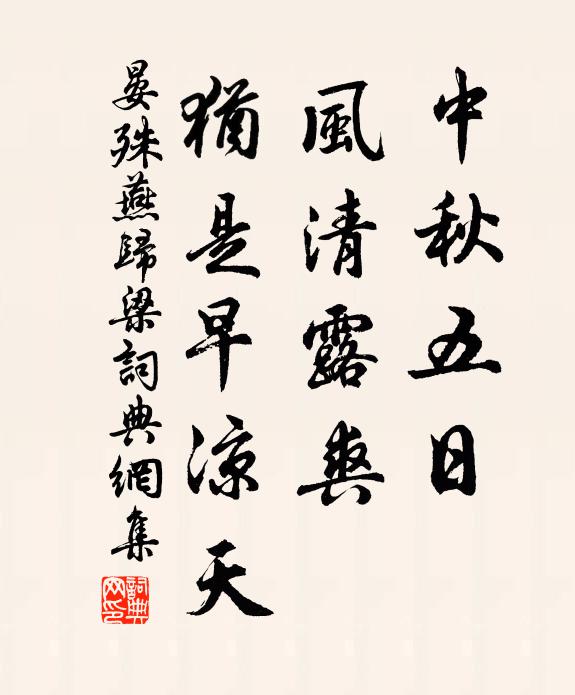 中秋五日
風清露爽
猶是早涼天
晏殊燕歸梁詞典網集
詞典網印